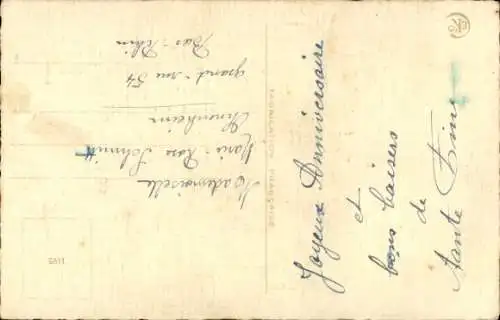 Joyeux Anniversaire
et
bons baisers
de
Tante Fine
FABRICATION FRANÇAISE
Mademoiselle
Marie-Rose Schmitt
grand-rue 54
Bas-Rhin